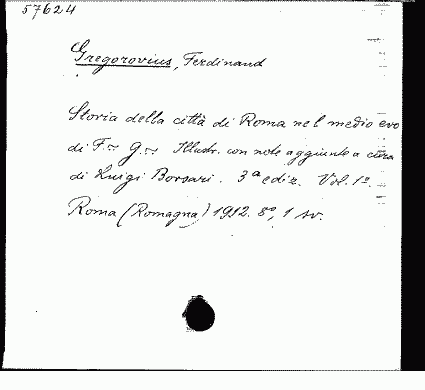 57624
Gregorovius, Ferdinand
Storia della città di Roma nel medio evo
di F~ G~ Illustr. con note aggiunte a cura
di Luigi Borsari. 3a ediz. Vol. 1º.
Roma (Romagna) 1912. 8º, 1 sv.